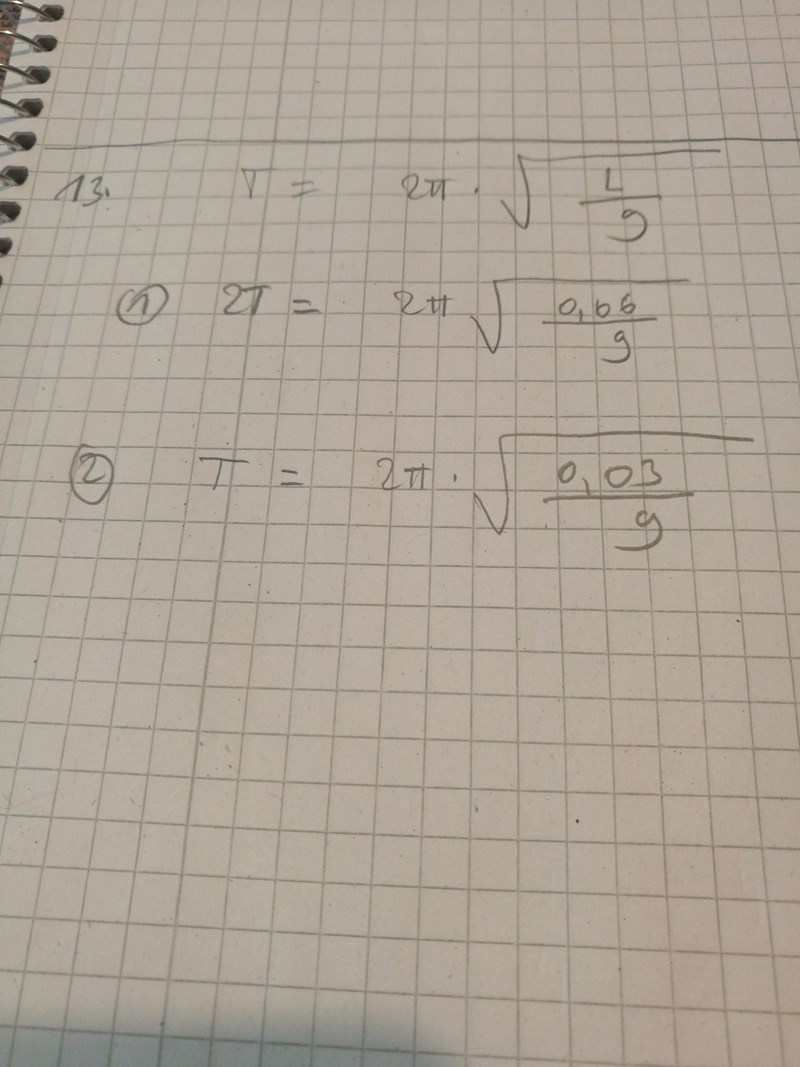 13. T = 2π · √(L/g)
① 2T = 2π √(0,66/g)
② T = 2π · √(0,03/g)